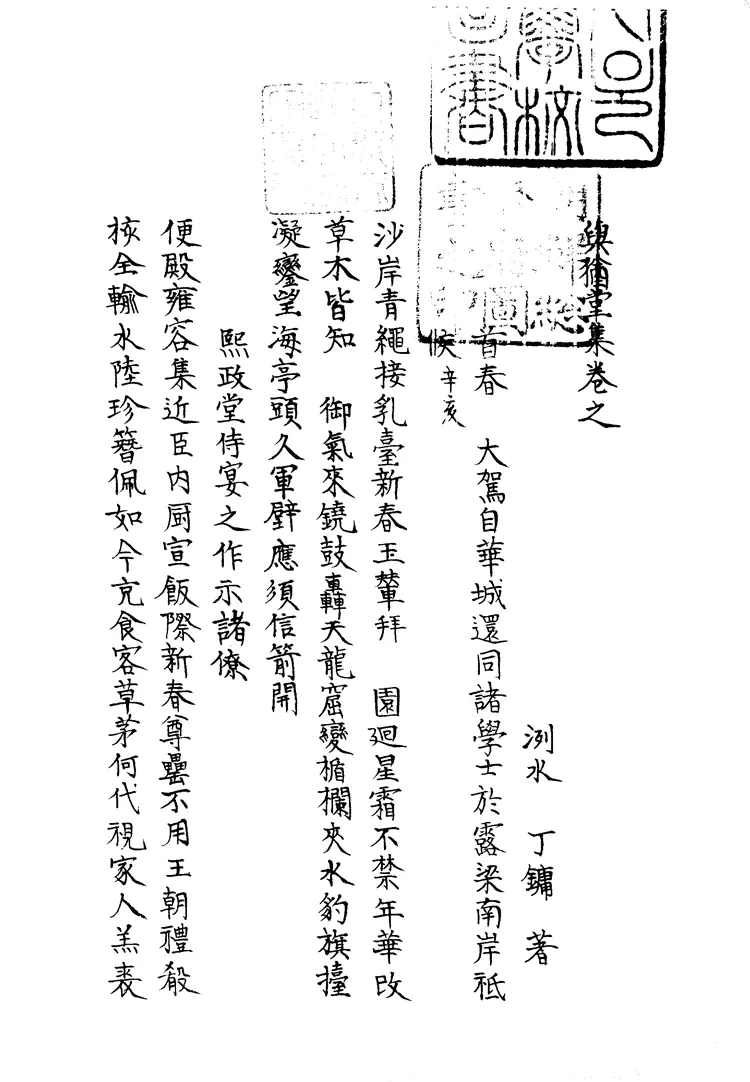 與猶堂集卷之
洌水 丁鏞 著
首春 大駕自華城還同諸學士於露梁南岸祗
候辛亥
沙岸青繩接乳臺新春玉輦拜 園廻星霜不禁年華改
草木皆知 御氣來鐃鼓轟天龍窟變楯欄夾水豹旗擡
凝鑾望海亭頭久軍壁應須信箭開
熙政堂侍宴之作示諸僚
便殿雍容集近臣內厨宣飯際新春尊罍不用王朝禮殽
核全輸水陸珍簪佩如今充食客草茅何代視家人羔裘